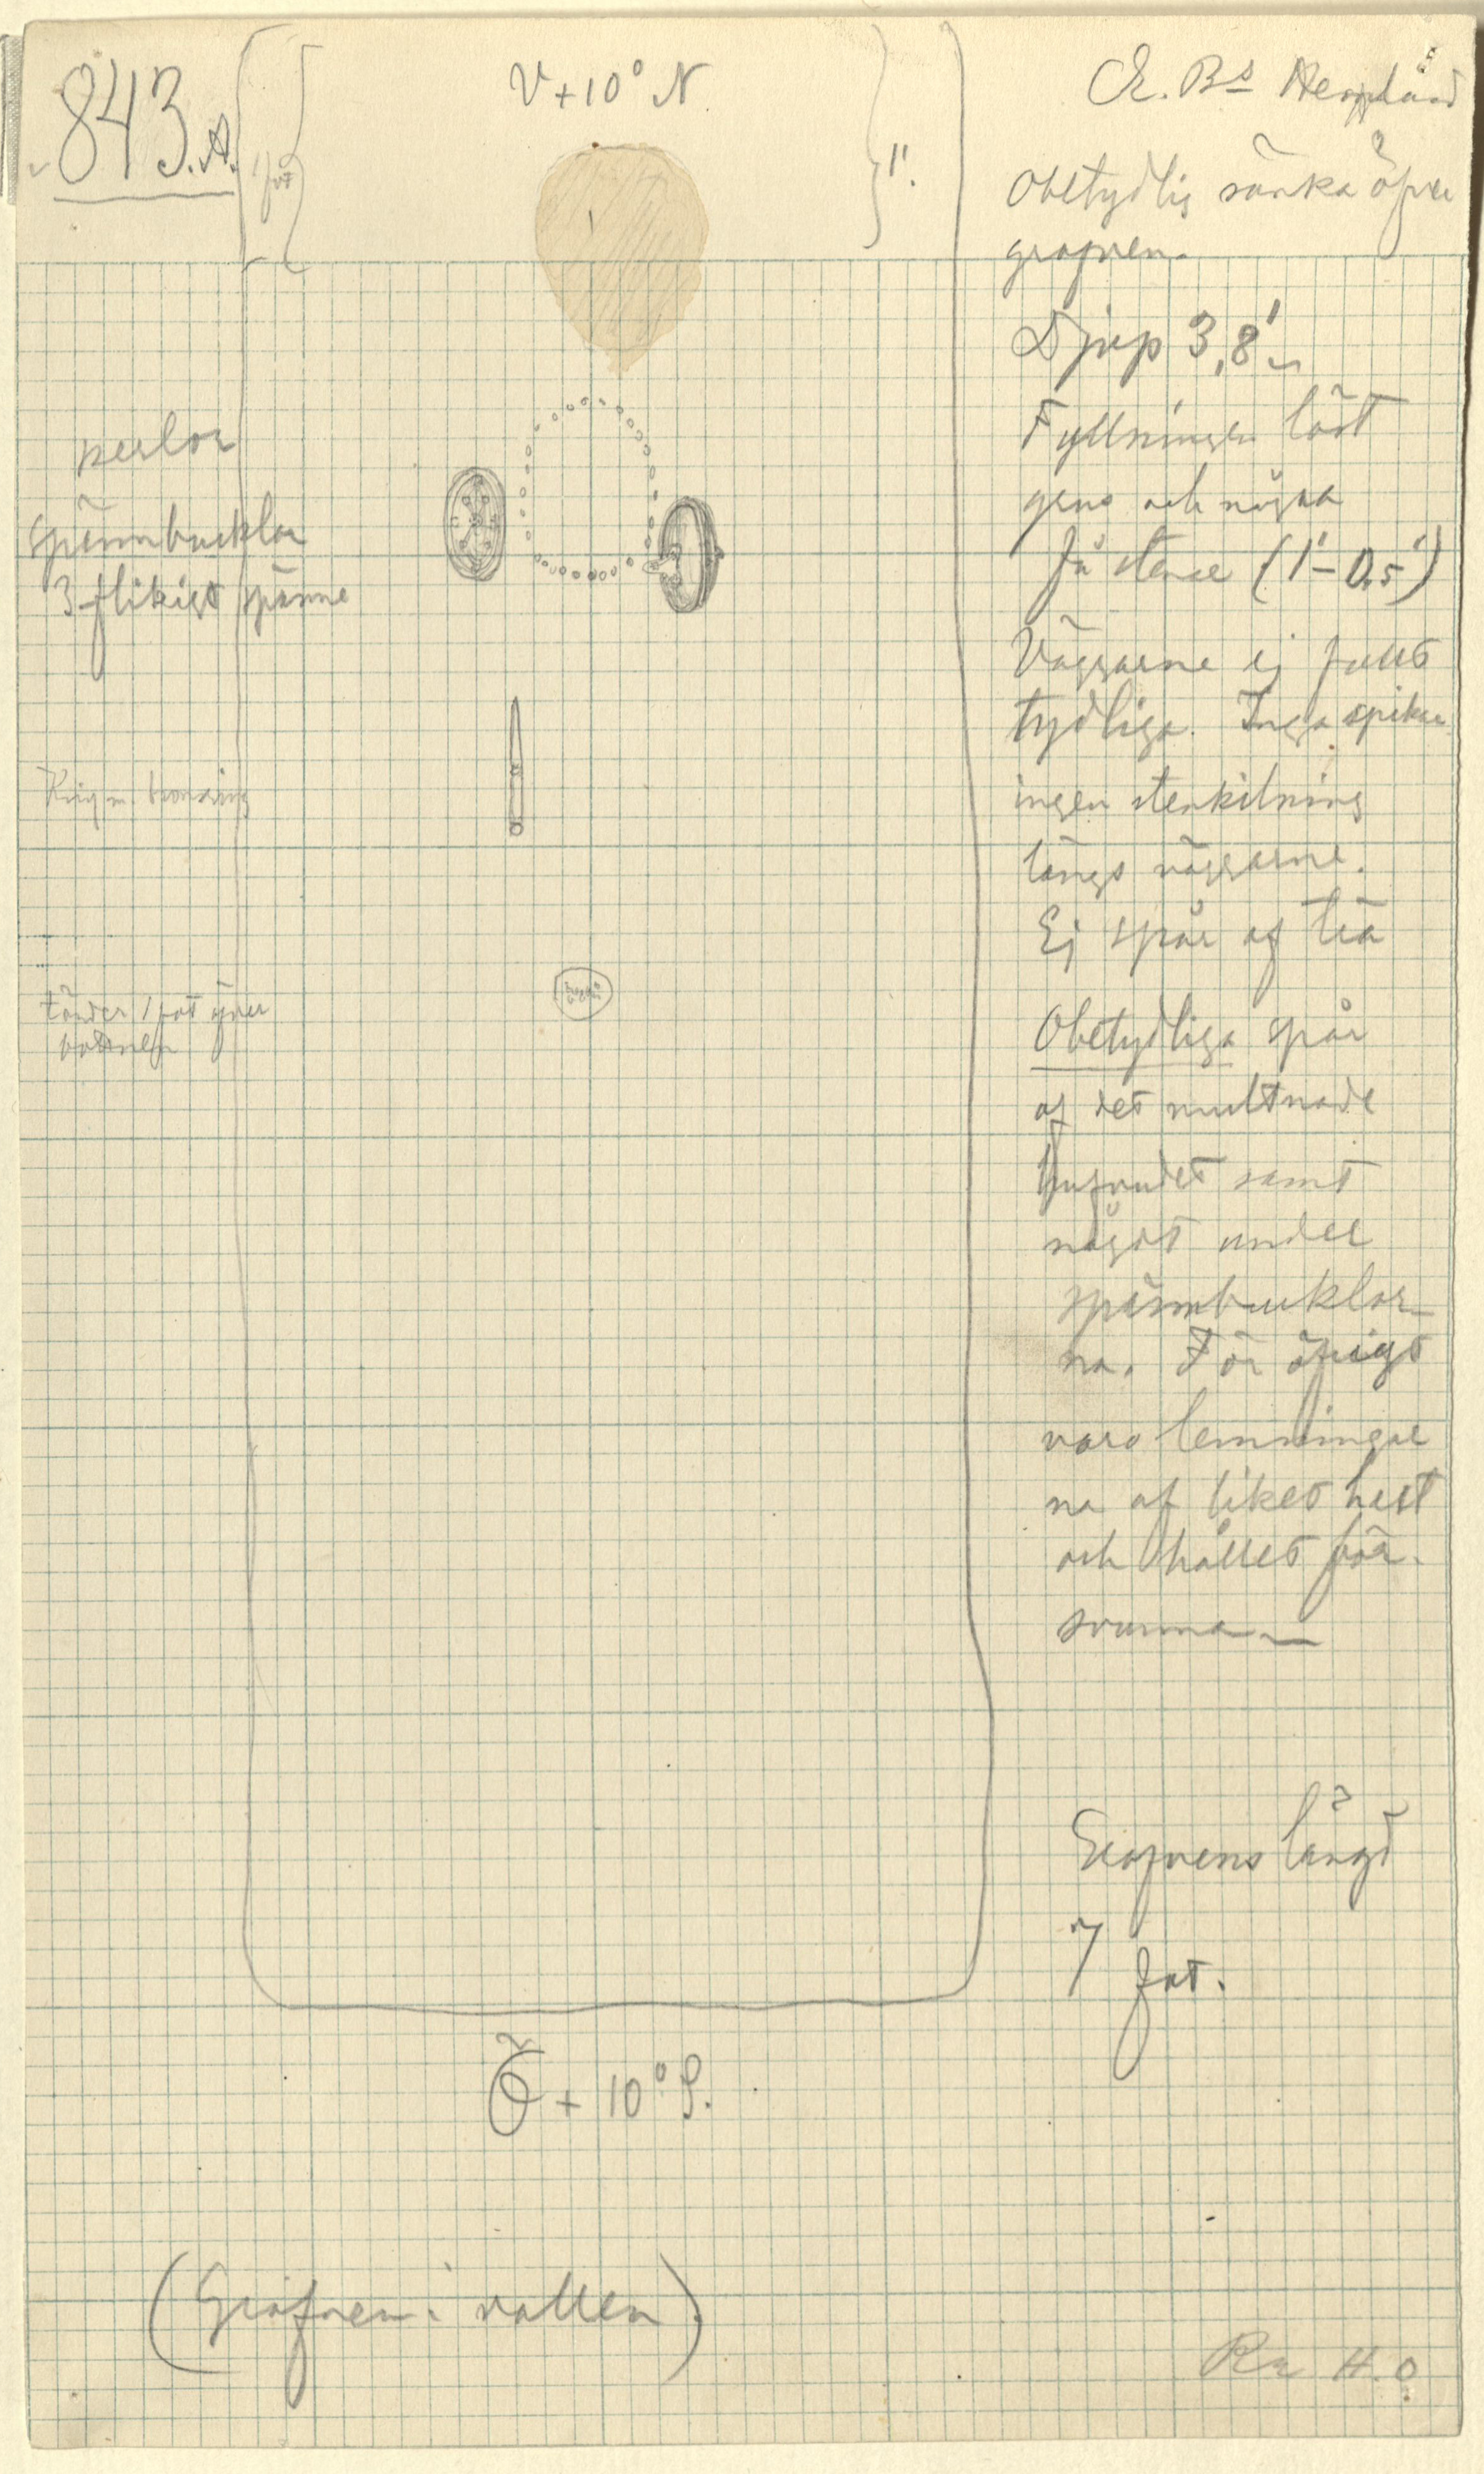 843.A.
V+10° N.
1 fot
1'.
Obetydlig sänka öfver
grafven.
Djup 3,8'
Fyllningen löst
grus och några
få stenar (1'-0,5')
Väggarne ej fullt
tydliga. Inga spikar
ingen stenkilning
längs väggarne.
Ej spår af trä
Obetydliga spår
af det multnade
hufvudet samt
något under
spännbucklor
na. För öfrigt
voro lemningar
na af liket helt
och hållet för-
svunna
Grafvens längd
7 fot.
perlor
spännbucklor
3-flikigt spänne
Kniv m. bronsring
tänder 1 fot öfver
bottnen
Ö + 10° S.
(Grafven i vallen)
H.O